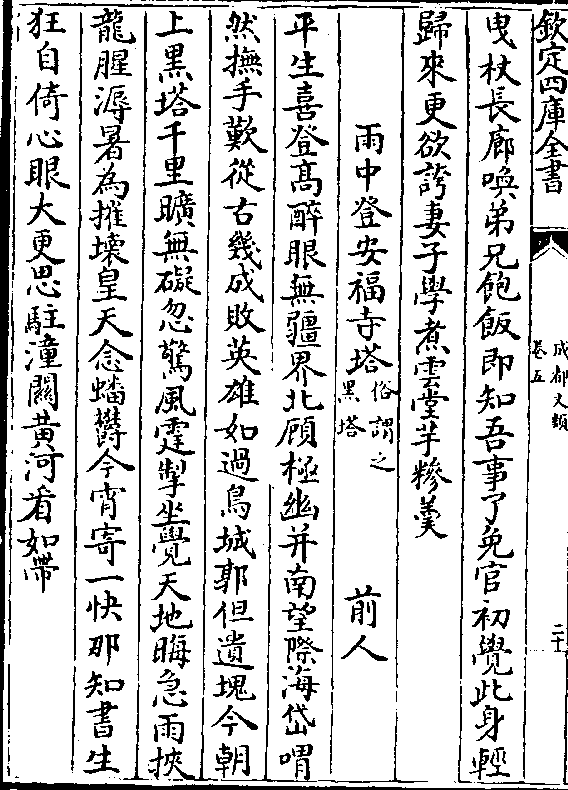 欽定四庫全書
成都文類
卷五
二十
曳杖長廊喚弟兄飽飯即知吾事了免官初覺此身輕
歸來更欲誇妻子學煮雲堂芋糝羮
雨中登安福寺塔俗謂之黑塔 前人
平生喜登髙醉眼無疆界北顧極幽并南望際海岱喟
然撫手歎從古幾成敗英雄如過鳥城郭但遺塊今朝
上黒塔千里曠無礙忽驚風霆掣坐覺天地晦急雨挾
龍腥溽暑為摧壊皇天念蟠鬱今宵寄一快那知書生
狂自倚心眼大更思駐潼關黄河看如帶